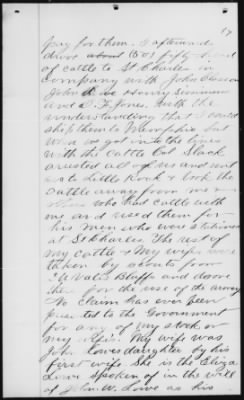 17
pay for them. I afterward
drove about (50) fifty head
of cattle to St. Charles in
company with John
John Henry Simmons
and Jones. with the
understanding that I could
ship them to Memphis but
when we got into the lines
with the Cattle Slack
arrested all of us and sent
us to Little Rock & took the
cattle away from me &
others who had cattle with
me and used them for
his men who were stationed
at St Charles. The rest of
my cattle & my wifes were
taken by scouts from
De Valls Bluff and drove
for the use of the army
No Claim has ever been
presented to the Government
for any of my stock or
my wifes. My wife was
John Lowes daughter by his
first wife. She is the Eliza
Lowe spoken of in the will
of John W. Lowe as his